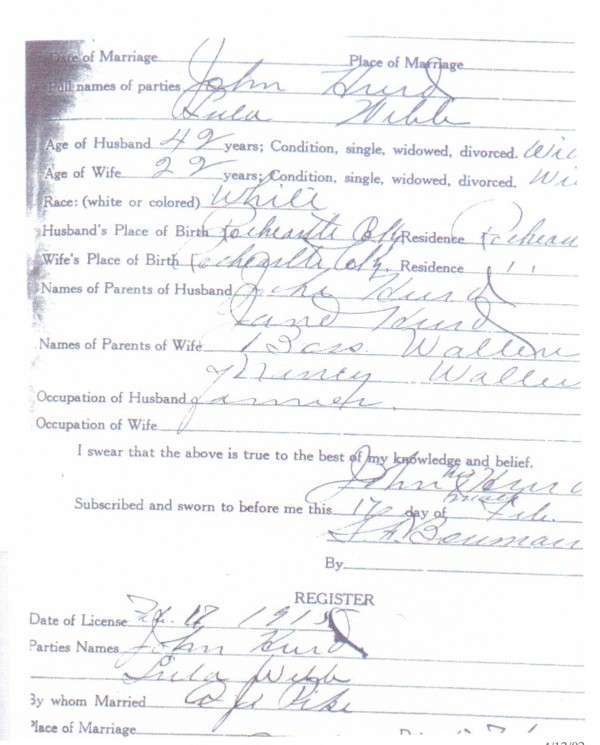 Date of Marriage Place of Marriage
Full names of parties John Hurd
Lula Webb
Age of Husband 42 years; Condition, single, widowed, divorced.
Age of Wife 22 years; Condition, single, widowed, divorced.
Race: (white or colored) White
Husband's Place of Birth Residence
Wife's Place of Birth Residence " "
Names of Parents of Husband Hurd
Jane Hurd
Names of Parents of Wife Wallen
Wallen
Occupation of Husband Farmer.
Occupation of Wife
I swear that the above is true to the best of my knowledge and belief.
John his Hurd
mark
Subscribed and sworn to before me this 17 day of Feb.
Bowman
By
REGISTER
Date of License Feb. 1915
Parties Names John Hurd
Lula Webb
By whom Married Pike
Place of Marriage